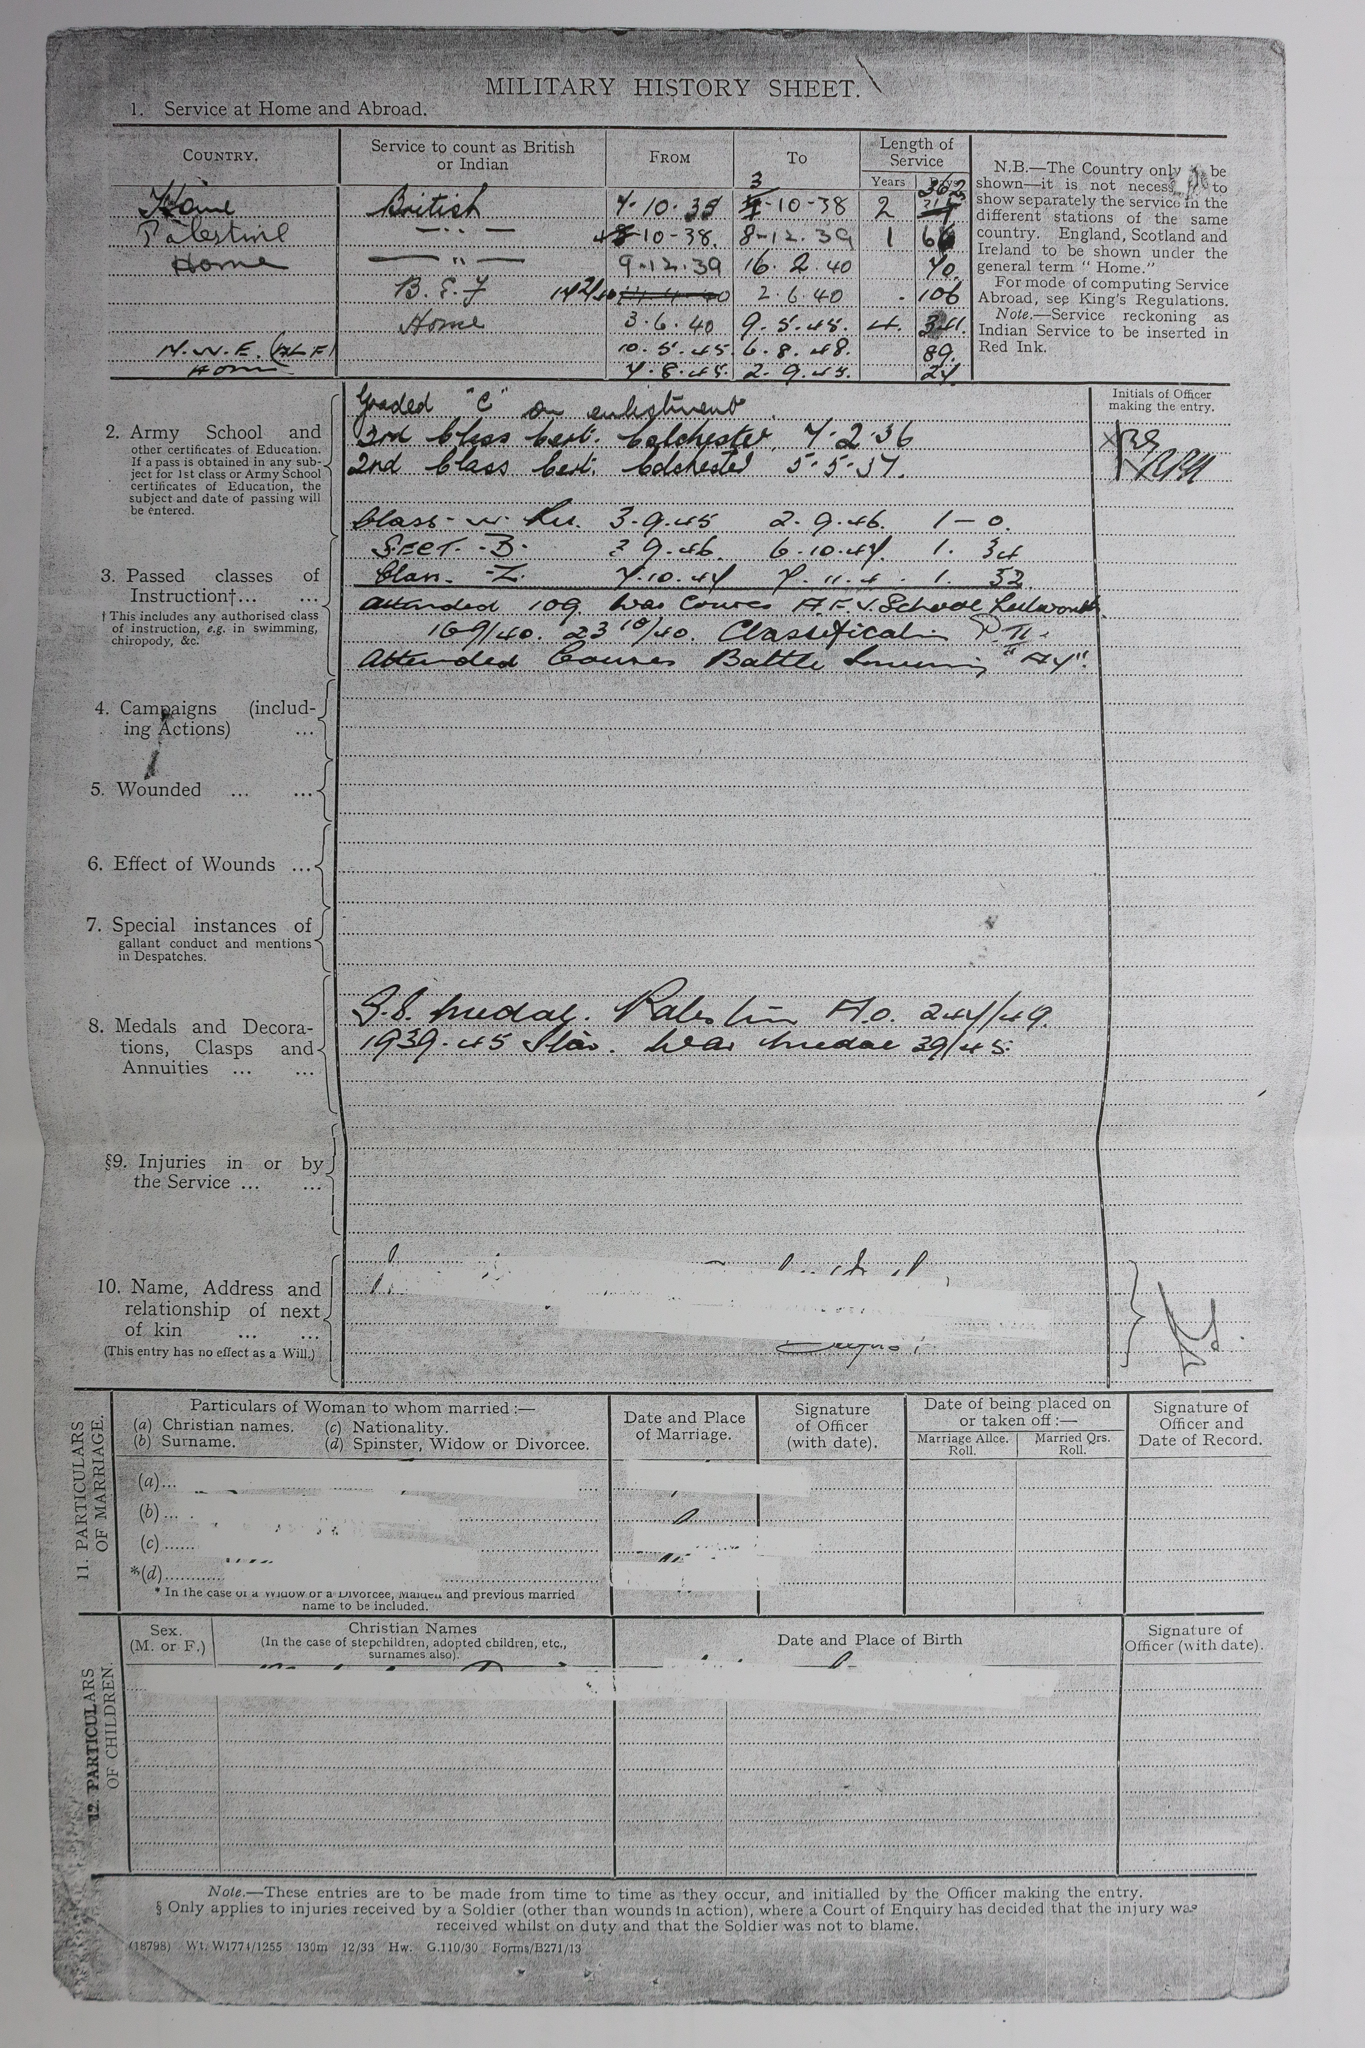 MILITARY HISTORY SHEET.
1. Service at Home and Abroad.
COUNTRY.
Service to count as British or Indian
FROM
TO
Length of Service
Years
Home British 7-10-35 3-10-38 2 362
Palestine —"— 4-10-38. 8-12.39 1 66
Home —"— 9-12-39 16.2.40 70
B.E.F 2.6.40 . 106
Home 3.6.40 9.5.45. 4. 341
N.W.E. (ALF) 10.5.45. 6.8.45. 89.
Home 7.8.45. 2.9.45. 27
N.B.—The Country only be
shown—it is not neces to
show separately the service in the
different stations of the same
country. England, Scotland and
Ireland to be shown under the
general term "Home."
For mode of computing Service
Abroad, see King's Regulations.
Note.—Service reckoning as
Indian Service to be inserted in
Red Ink.
Initials of Officer
making the entry.
2. Army School and
other certificates of Education.
If a pass is obtained in any sub-
ject for 1st class or Army School
certificates of Education, the
subject and date of passing will
be entered.
Graded "C" on enlistment.
3rd Class Cert. Colchester. 7.2.36
2nd Class Cert. Colchester 5.5.37.
Class - W. Res. 3.9.45 2.9.46. 1 - 0.
Sect. -B- 3 9.46. 6.10.47. 1. 34
Class. -Z. 7.10.47 1. 32
3. Passed classes of
Instruction†... ...
† This includes any authorised class
of instruction, e.g. in swimming,
chiropody, &c.
Attended 109. War Course A.F.V. School Lulworth
16 9/40. 23 10/40. Classification
Attended Course Battle
4. Campaigns (includ-
ing Actions) ...
5. Wounded ... ...
6. Effect of Wounds ...
7. Special instances of
gallant conduct and mentions
in Despatches.
8. Medals and Decora-
tions, Clasps and
Annuities ... ...
G.S. Medal. Palestine A.O. 247/49.
1939-45 Star. War Medal 39/45.
§9. Injuries in or by
the Service ... ...
10. Name, Address and
relationship of next
of kin ... ...
(This entry has no effect as a Will.)
11. PARTICULARS
OF MARRIAGE.
Particulars of Woman to whom married :—
(a) Christian names. (c) Nationality.
(b) Surname. (d) Spinster, Widow or Divorcee.
Date and Place
of Marriage.
Signature
of Officer
(with date).
Date of being placed on
or taken off :—
Marriage Allce.
Roll.
Married Qrs.
Roll.
Signature of
Officer and
Date of Record.
(a)...
(b)...
(c)......
*(d)..........
* In the case of a Widow or a Divorcee, Maiden and previous married
name to be included.
12. PARTICULARS
OF CHILDREN.
Sex.
(M. or F.)
Christian Names
(In the case of stepchildren, adopted children, etc.,
surnames also).
Date and Place of Birth
Signature of
Officer (with date).
Note.—These entries are to be made from time to time as they occur, and initialled by the Officer making the entry.
§ Only applies to injuries received by a Soldier (other than wounds in action), where a Court of Enquiry has decided that the injury was
received whilst on duty and that the Soldier was not to blame.
(18798) Wt. W1774/1255 130m 12/33 Hw. G.110/30 Forms/B271/13